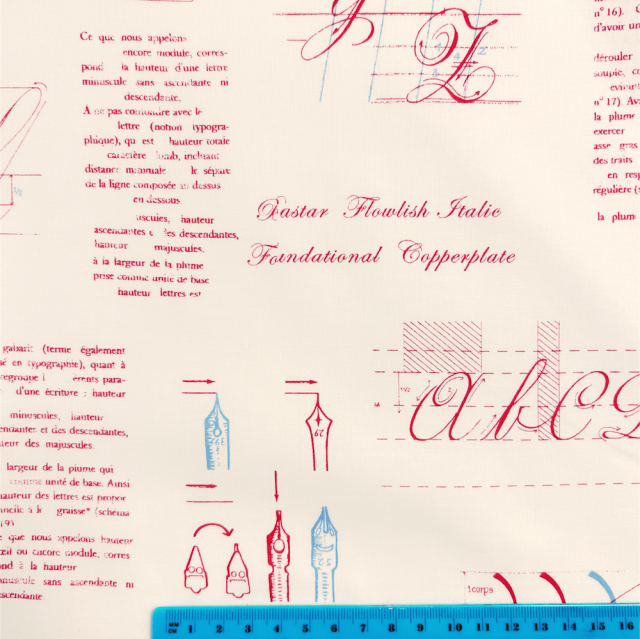 Ce que nous appelons
encore module, corres-
pond la hauteur d'une lettre
minuscule sans ascendante ni
descendante.
A ne pas confondre avec le
lettre (notion typogra-
phique), qui est hauteur totale
caractère inchiant
distance le sépare
de la ligne composée au dessus
en dessous.
uscules, hauteur
ascendantes les descendantes,
hauteur majuscules.
à la largeur de la plume
prise comme unité de base
hauteur lettres est
Rastar Flowlish Italic
Foundational Copperplate
n° 16).
d'avoir un
dérouler
souple, co
n° 17). Av
la plume
exercer
asse gras
des traits
en resp
régulière (s
la plum
1/2
Z
4 2
gabarit (terme également
é en typographie), quant à
regroupe l érents para-
d'une écriture : hauteur
minuscules, hauteur
endantes et des descendantes,
uteur des majuscules.
largeur de la plume qui
comme unité de base. Ainsi
hauteur des lettres est propor
graisse" (schéma
19)
e que nous appelons hauteur
œil ou encore module, corres
ond à la hauteur
inuscule sans ascendante ni
escendante.
a b c d
1 corps
MM
CM 1 2 3 4 5 6 7 8 9 10 11 12 13 14 15 16